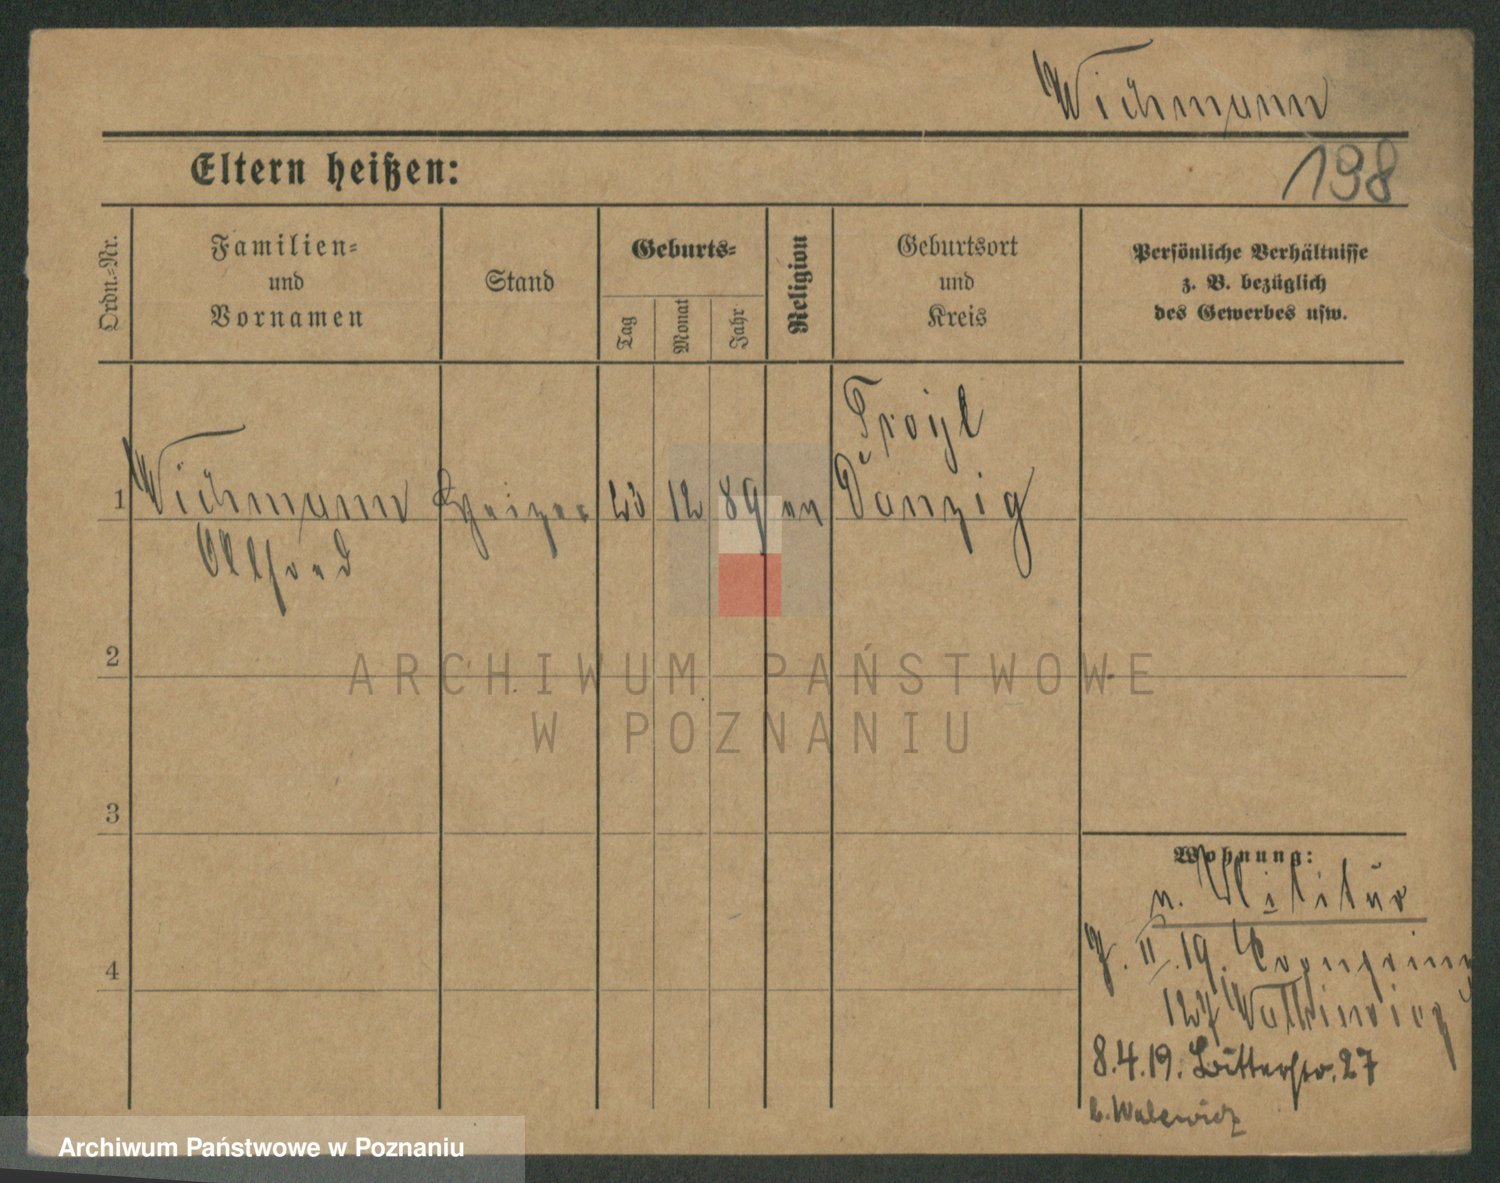 Wichmann
Eltern heißen:
198
Ordn.-Nr.
Familien- und Vornamen
Stand
Geburts-
Tag
Monat
Jahr
Religion
Geburtsort und Kreis
Persönliche Verhältnisse
z. B. bezüglich
des Gewerbes usw.
Troyl
1 Wichmann Heizer 23 12 89 ev Danzig
Alfred
2
ARCHIWUM PAŃSTWOWE
W POZNANIU
3
Wohnung:
v. Militär
7. II. 19. Kronprinz
127 Walkiewicz
8.4.19. Bitterstr. 27
b. Walewicz
4
Archiwum Państwowe w Poznaniu